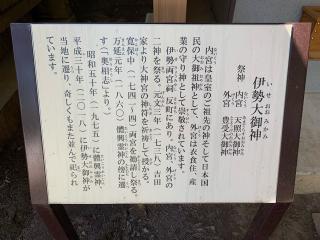 伊勢大御神
いせおおみかみ
祭神 内宮 天照大御神
外宮 豊受大御神
内宮は皇室のご祖先の神そして日本国
民の大御祖神として、外宮は衣食住、産
業の守り神として崇敬されています。
伊勢両宮祠 反町にあり、内宮、外宮の
二神を祭る。元文三年（一七三八）吉田
家より大神宮の神符を祈祷して授かる。
寛保中（一七四一‐四四）両宮を勧請し祭る。
万延元年（一八六〇）體興霊神の傍に遷
す（「奥相志」より）。
昭和五十年（一九七五）に體興霊神、
平成三十年（二〇一八）に伊勢大御神が
当地に遷り、奇しくもまた並んで祀られ
ています。